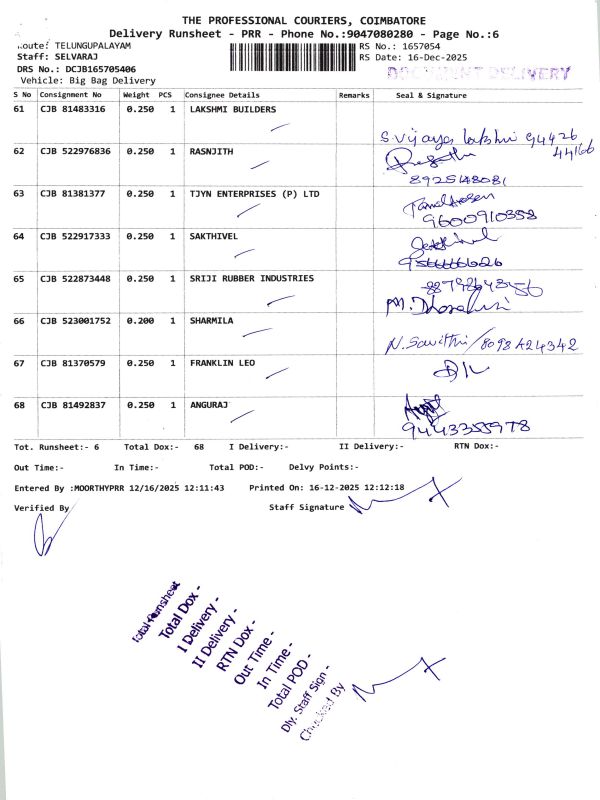 THE PROFESSIONAL COURIERS, COIMBATORE
Delivery Runsheet - PRR - Phone No.:9047080280 - Page No.:6
Route: TELUNGUPALAYAM
RS No.: 1657054
Staff: SELVARAJ
RS Date: 16-Dec-2025
DRS No.: DCJB165705406
DOCUMENT DELIVERY
Vehicle: Big Bag Delivery
S No Consignment No Weight PCS Consignee Details Remarks Seal & Signature
61 CJB 81483316 0.250 1 LAKSHMI BUILDERS
S. Vijaya lakshmi 94426 44166
62 CJB 522976836 0.250 1 RASNJITH
8925148081
63 CJB 81381377 0.250 1 TJYN ENTERPRISES (P) LTD
9600910358
64 CJB 522917333 0.250 1 SAKTHIVEL
65 CJB 522873448 0.250 1 SRIJI RUBBER INDUSTRIES
66 CJB 523001752 0.200 1 SHARMILA
N. Savithri / 8098424342
67 CJB 81370579 0.250 1 FRANKLIN LEO
68 CJB 81492837 0.250 1 ANGURAJ
9443355978
Tot. Runsheet:- 6 Total Dox:- 68 I Delivery:- II Delivery:- RTN Dox:-
Out Time:- In Time:- Total POD:- Delvy Points:-
Entered By :MOORTHYPRR 12/16/2025 12:11:43 Printed On: 16-12-2025 12:12:18
Verified By Staff Signature
Total Runsheet
Total Dox -
I Delivery -
II Delivery -
RTN Dox -
Out Time -
In Time -
Total POD -
Dly. Staff Sign -
Checked By